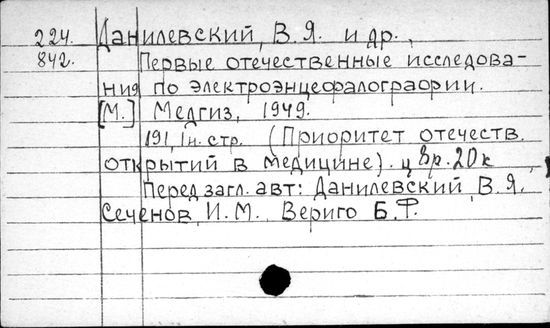 224. Данилевский, В.Я. и др.,
842. Первые отечественные исследова-
ния по электроэнцефалограории.
[М.] Медгиз, 1949.
191, 1н. стр. (Приоритет отечеств.
открытий в медицине). ц 8р. 20к
Перед загл. авт: Данилевский, В.Я.,
Сеченов, И.М., Вериго Б.Ф.